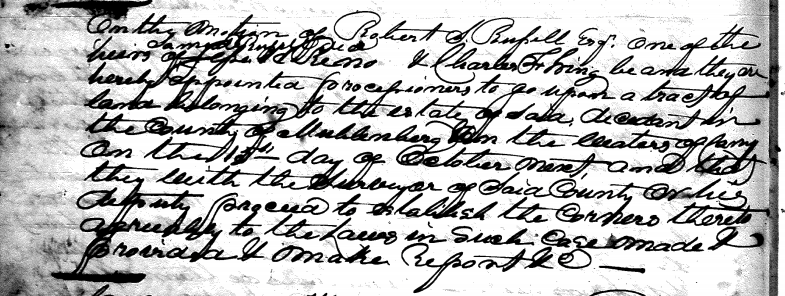 On the Motion of Robert S Russell Esqr. one of the
Samuel Russell Decd
heirs of Reno & Charles Fr King be and they are
hereby appointed processioners to go upon a tract of
land belonging to the estate of said decedant in
the County of Muhlenberg on the waters of
On the 15th day of October next, and that
they with the Surveyor of Said County or his
deputy proceed to establish the Corners thereto
agreeably to the Laws in Such Case made &
provided & make Report &C